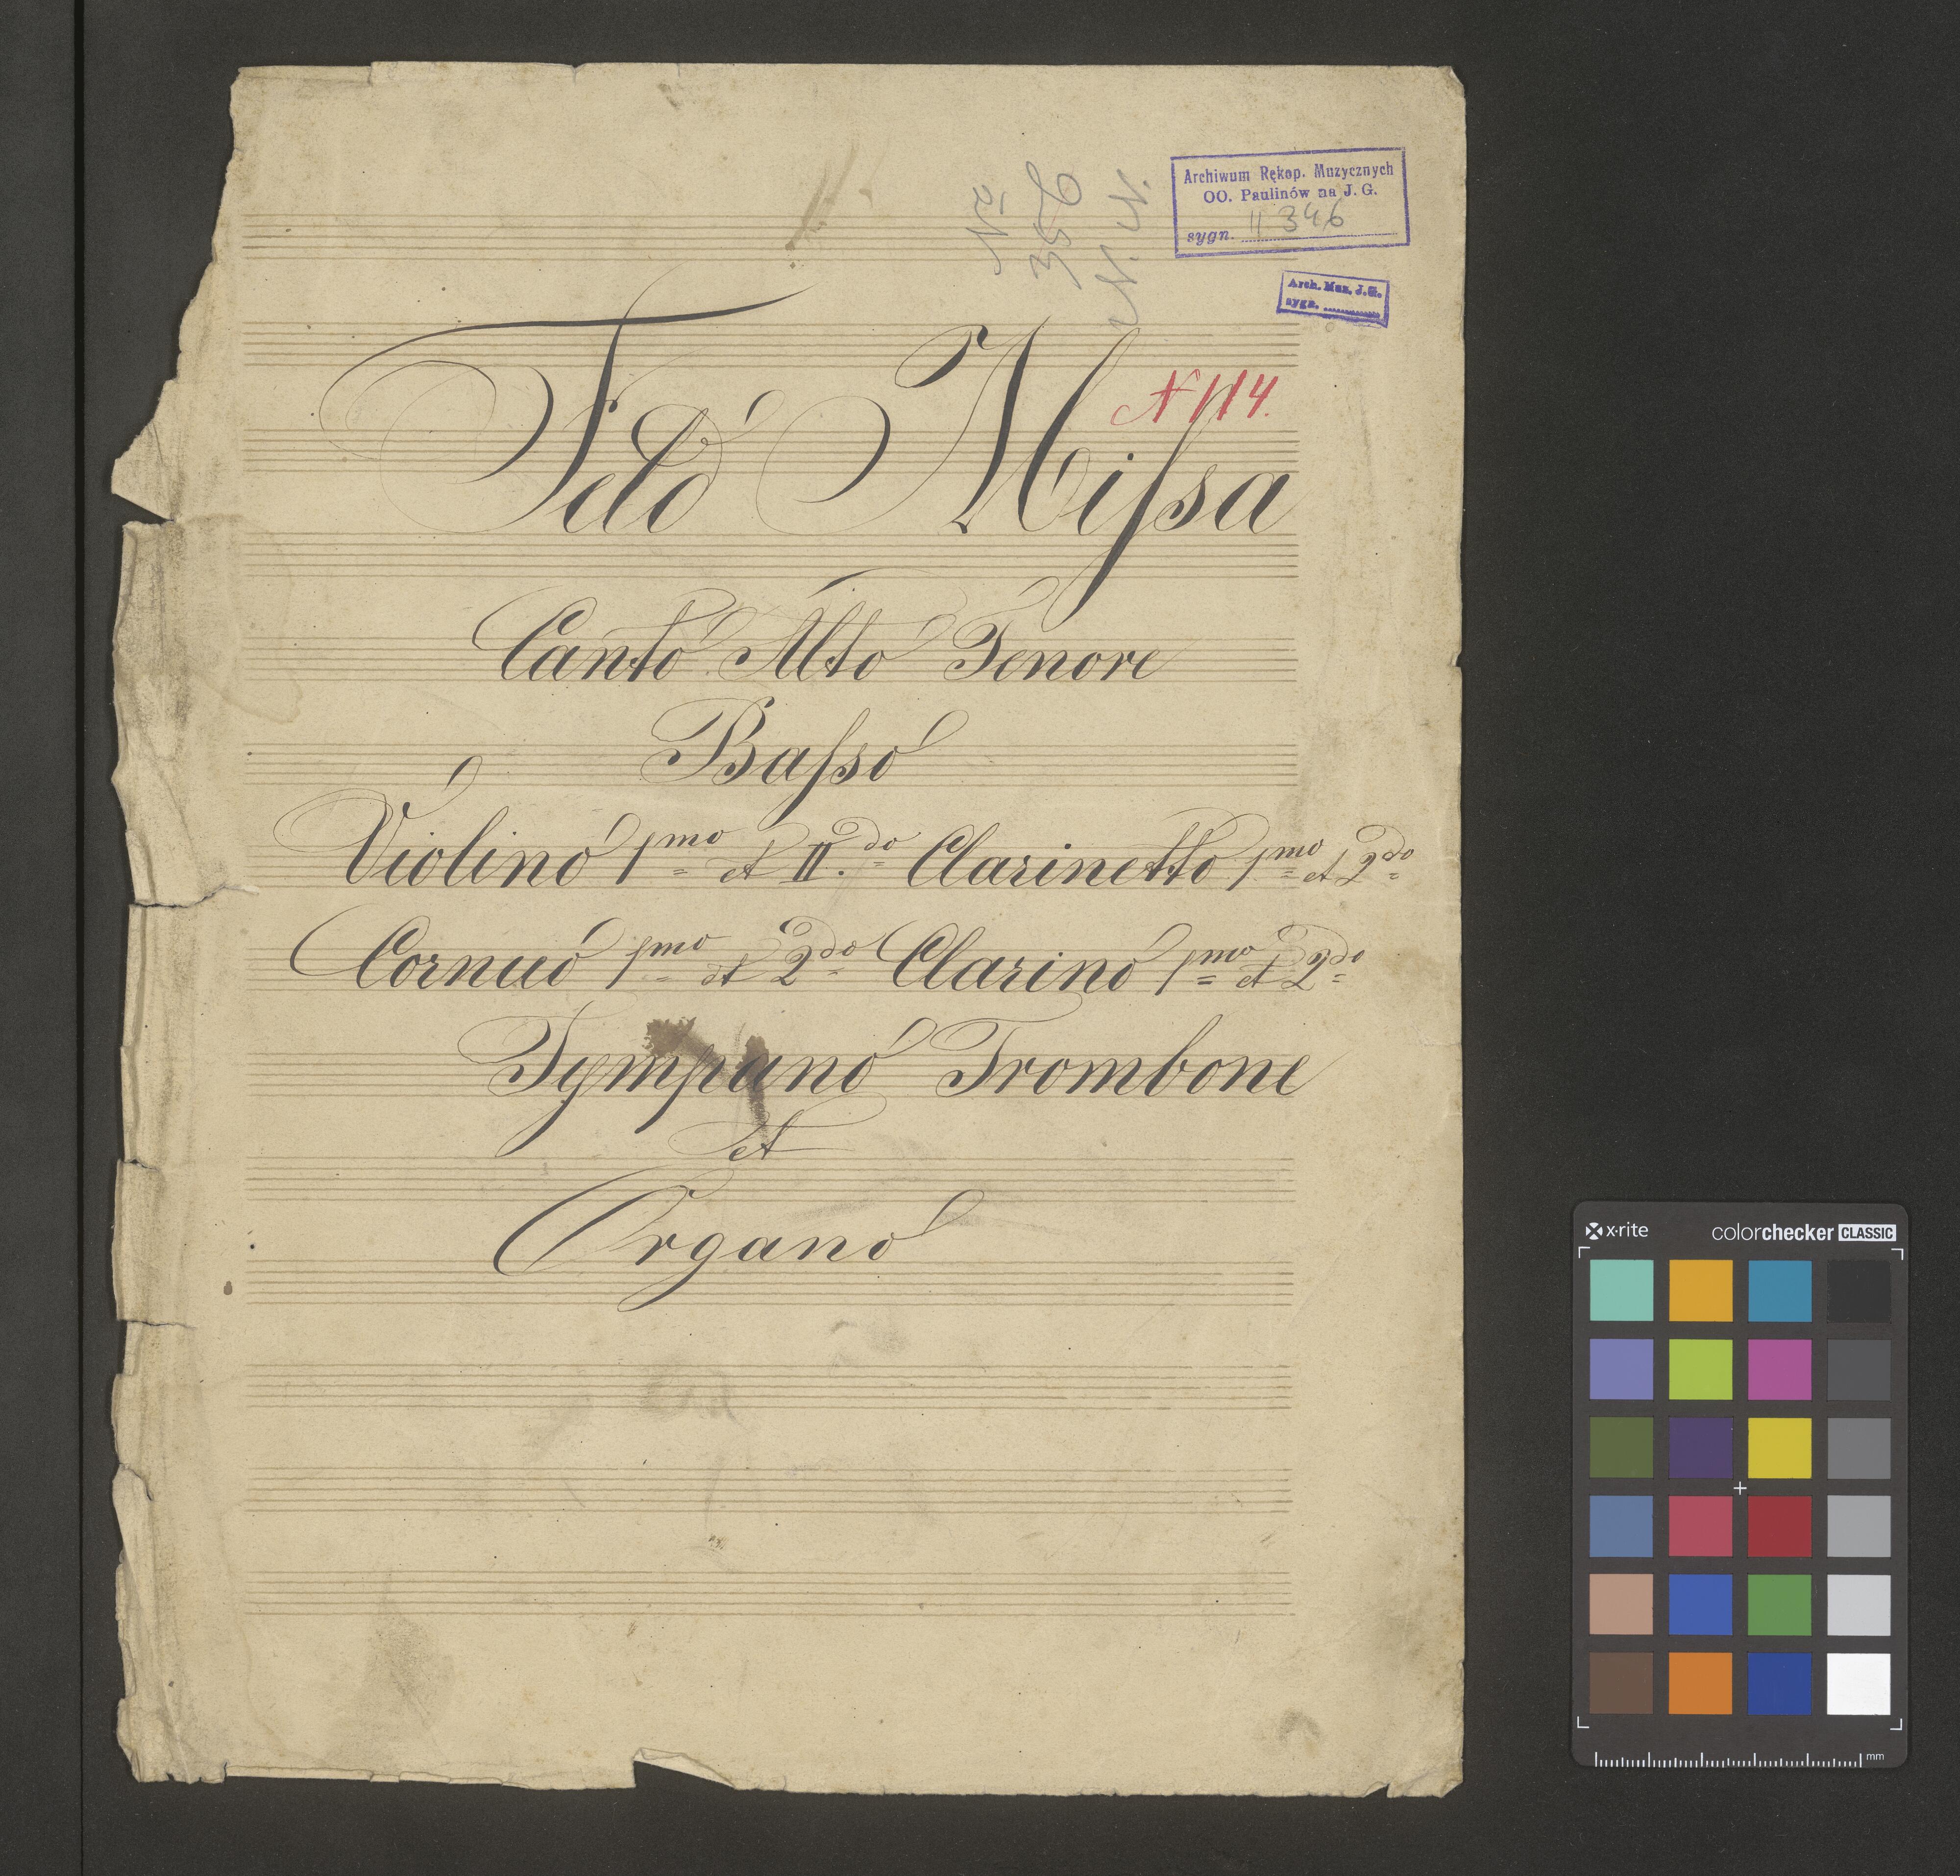 Archiwum Rękop. Muzycznych
OO. Paulinów na J. G.
sygn. II 346
Arch. Muz. J. G.
sygn.
№
356
N. N.
N 114.
Feld Miſsa
Canto Alto Tenore
Baſso
Violino 1mo et II.do Clarinetto 1mo et 2do
Cornuo 1mo et 2do Clarino 1mo et 2do
Tympano Trombone
et
Organo
x·rite colorchecker CLASSIC
mm